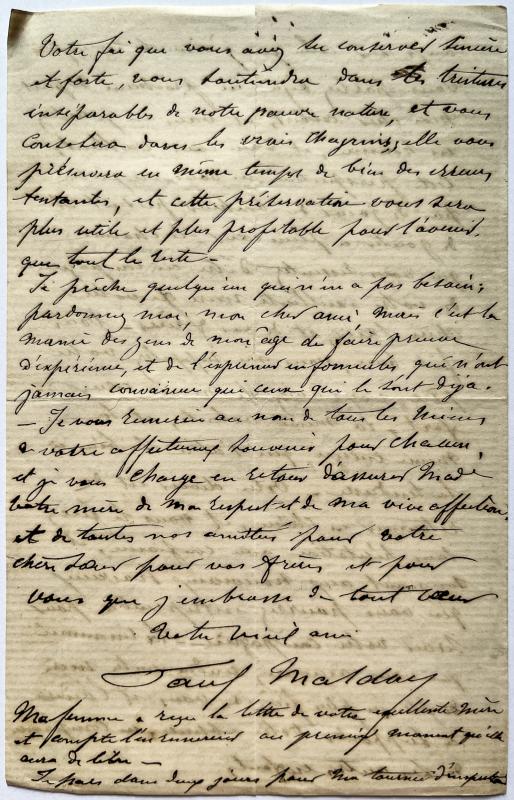 Votre foi que vous avez su conserver sincère
et forte, vous soutiendra dans les tristesses
inséparables de notre pauvre nature, et vous
consolera dans les vrais chagrins; elle vous
préservera en même temps de bien des erreurs
tentantes, et cette préservation vous sera
plus utile et plus profitable pour l'avenir,
que tout le reste –
Je prêche quelqu'un qui n'en a pas besoin;
pardonnez moi, mon cher ami, mais c'est la
manie des gens de mon âge de faire preuve
d'expérience, et de l'exprimer en formules, qui n'ont
jamais convaincu que ceux qui le sont déjà.
– Je vous remercie au nom de tous les miens
de votre affectueux souvenir pour chacun,
et je vous charge en retour d'assurer Made
votre mère de mon respect et de ma vive affection,
et de toutes nos amitiés pour votre
chère sœur pour vos frères et pour
vous que j'embrasse de tout cœur
Votre vieil ami
Paul
Ma femme a reçu la lettre de votre excellente mère
et compte l'en remercier au premier moment qu'elle
aura de libre –
Je pars dans deux jours pour ma tournée d'inspection